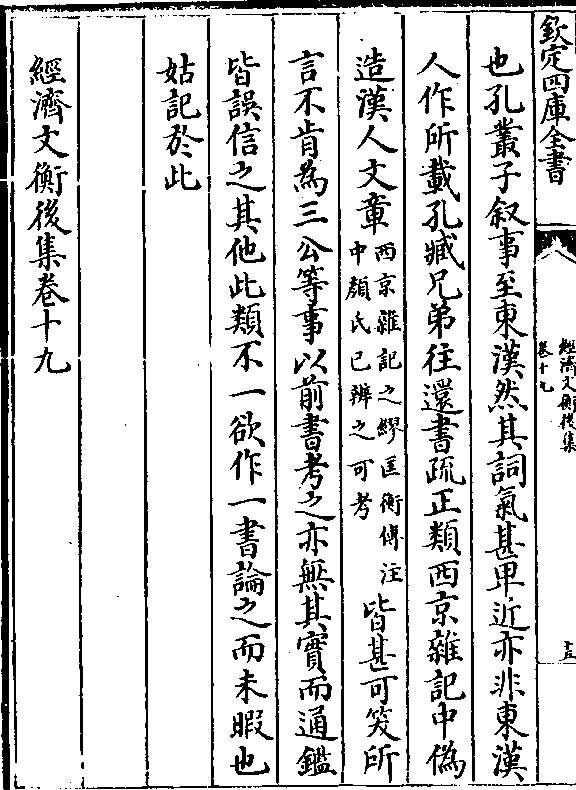 欽定四庫全書
經濟文衡後集
卷十九
也孔叢子叙事至東漢然其詞氣甚卑近亦非東漢
人作所載孔臧兄弟往還書疏正類西京雜記中偽
造漢人文章西京雜記之繆匡衡傳注
中顏氏已辨之可考皆甚可笑所
言不肯為三公等事以前書考之亦無其實而通鑑
皆誤信之其他此類不一欲作一書論之而未暇也
姑記於此
經濟文衡後集卷十九